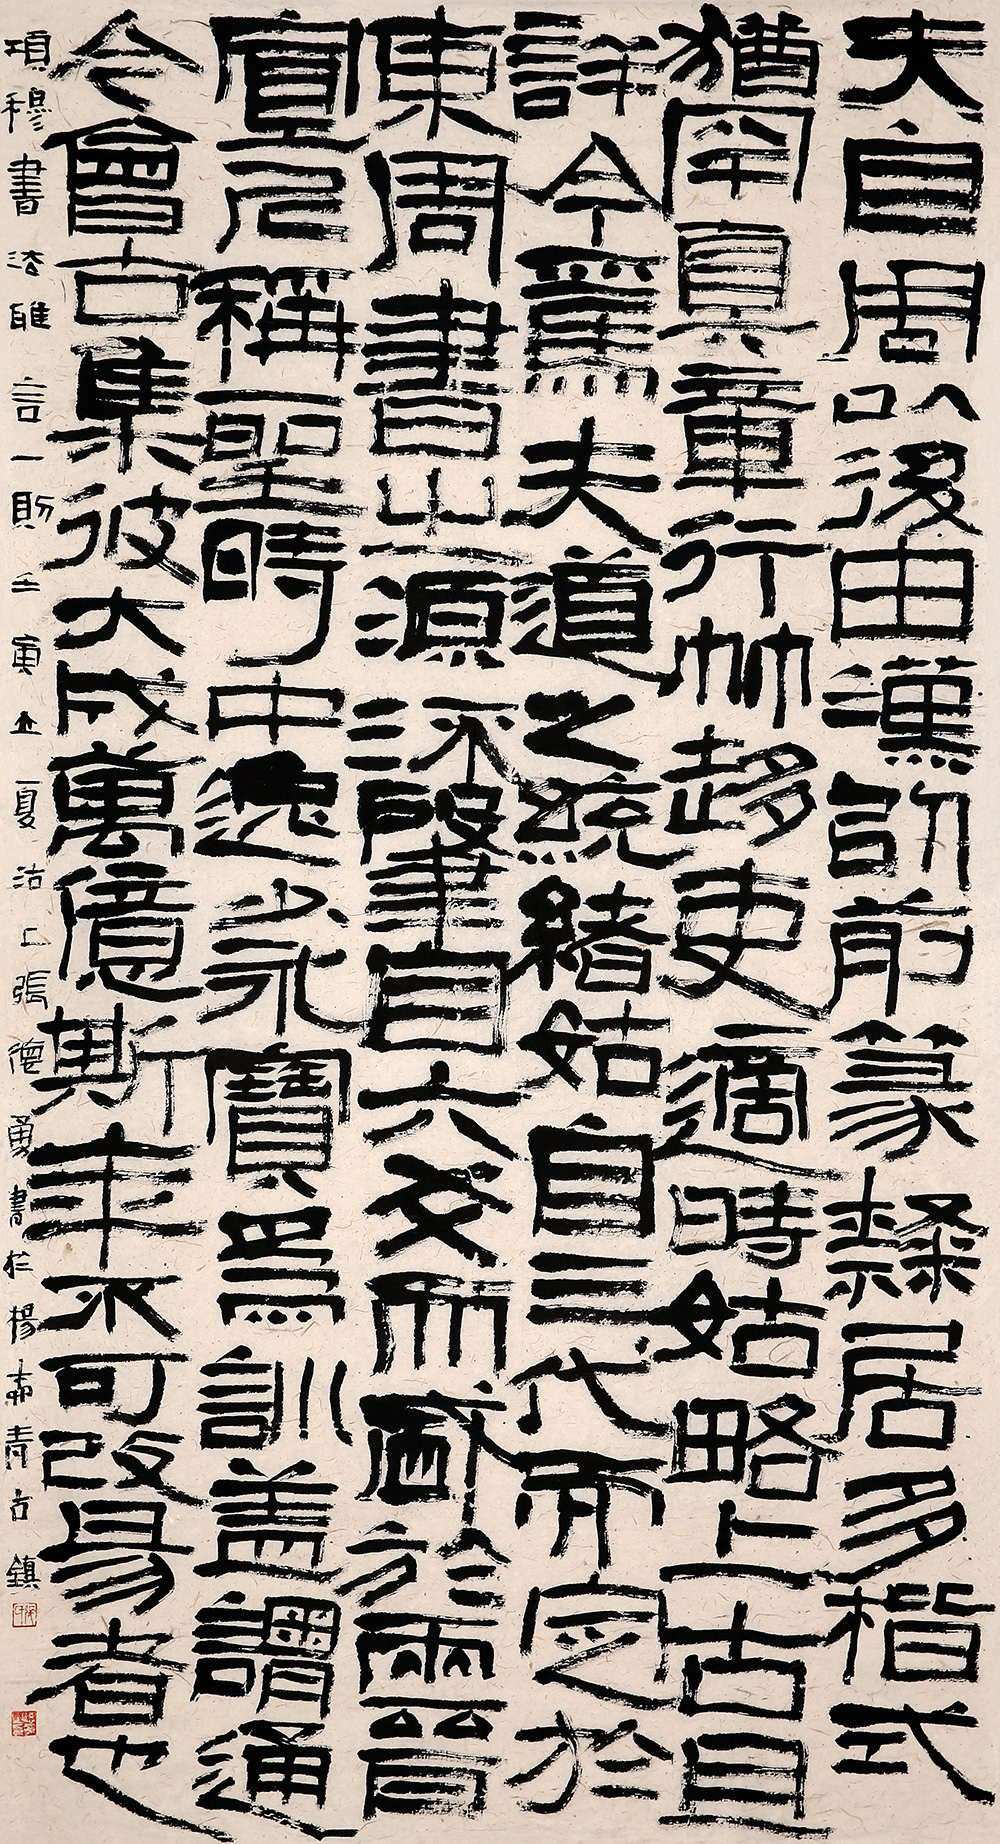 夫自周以後由漢訖前篆隸居多楷式
猶罕真章行艸趍吏適時姑略上古且
詳今焉夫道之統緒姑自三代而定於
東周書之源流肇自六爻而盛於兩晉
宣尼稱聖時中逸少永寶為訓盖謂通
今會古集彼大成萬億斯年不可改易者也
項穆書法雅言一則壬寅立夏沽上張德勇書於楊柳青古鎮